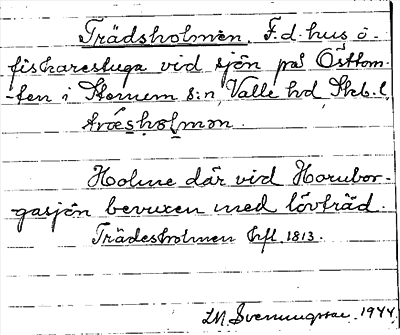 Trädsholmen. F.d. hus o.
fiskarestuga vid sjön på Östtom-
-ten i Stenum s:n, Valle hd, Skb. l.
træ̀shǫlmən.
Holme där vid Hornbor-
gasjön bevuxen med lövträd.
Trädesholmen hfl. 1813.
M. Svenungsson. 1944.